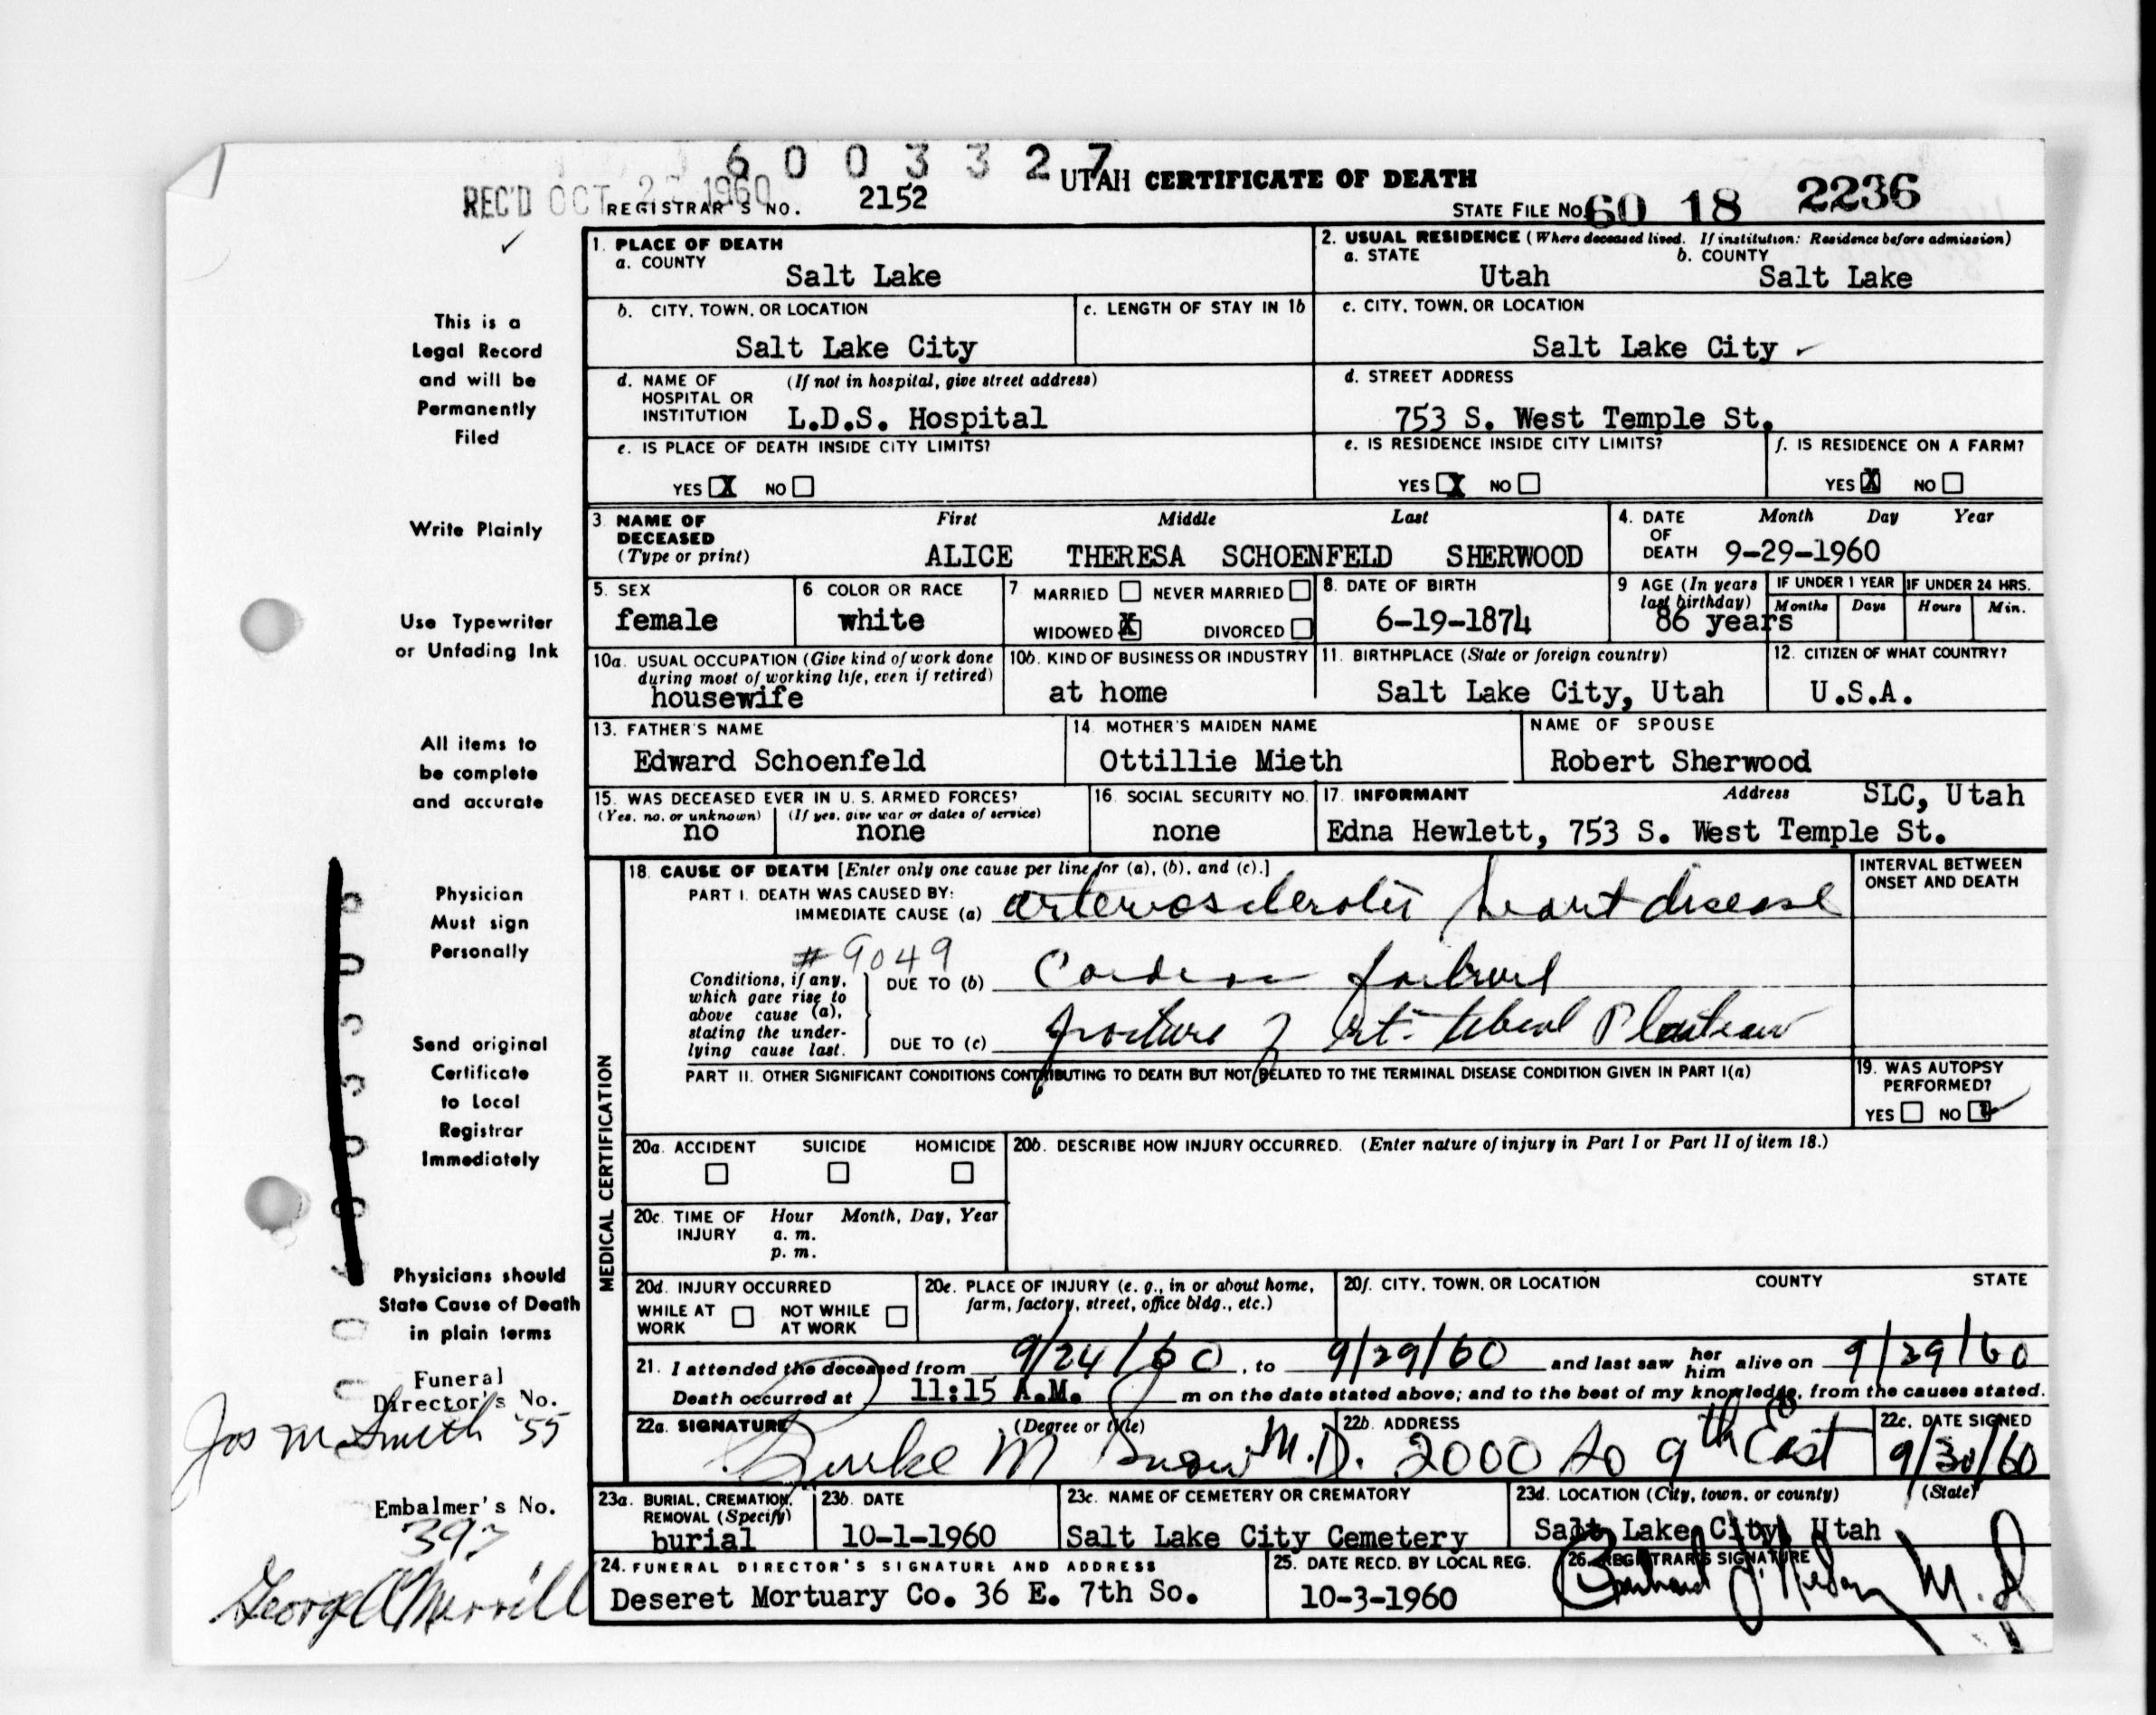 6003327
REC'D OCT 1960
REGISTRAR'S NO. 2152
UTAH CERTIFICATE OF DEATH
STATE FILE NO. 60 18 2236
This is a
Legal Record
and will be
Permanently
Filed
Write Plainly
Use Typewriter
or Unfading Ink
All items to
be complete
and accurate
Physician
Must sign
Personally
Send original
Certificate
to Local
Registrar
Immediately
Physicians should
State Cause of Death
in plain terms
Funeral
Director's No.
Jos M Smith '55
Embalmer's No.
397
George Merrill
1. PLACE OF DEATH
a. COUNTY
Salt Lake
2. USUAL RESIDENCE (Where deceased lived. If institution: Residence before admission)
a. STATE b. COUNTY
Utah Salt Lake
b. CITY, TOWN, OR LOCATION
Salt Lake City
c. LENGTH OF STAY IN 1b
c. CITY, TOWN, OR LOCATION
Salt Lake City
d. NAME OF (If not in hospital, give street address)
HOSPITAL OR
INSTITUTION L.D.S. Hospital
d. STREET ADDRESS
753 S. West Temple St.
e. IS PLACE OF DEATH INSIDE CITY LIMITS?
YES X NO
e. IS RESIDENCE INSIDE CITY LIMITS?
YES X NO
f. IS RESIDENCE ON A FARM?
YES X NO
3. NAME OF DECEASED (Type or print)
First Middle Last
ALICE THERESA SCHOENFELD SHERWOOD
4. DATE OF DEATH Month Day Year
9-29-1960
5. SEX
female
6. COLOR OR RACE
white
7. MARRIED NEVER MARRIED
WIDOWED X DIVORCED
8. DATE OF BIRTH
6-19-1874
9. AGE (In years last birthday)
86 years
IF UNDER 1 YEAR IF UNDER 24 HRS.
Months Days Hours Min.
10a. USUAL OCCUPATION (Give kind of work done
during most of working life, even if retired)
housewife
10b. KIND OF BUSINESS OR INDUSTRY
at home
11. BIRTHPLACE (State or foreign country)
Salt Lake City, Utah
12. CITIZEN OF WHAT COUNTRY?
U.S.A.
13. FATHER'S NAME
Edward Schoenfeld
14. MOTHER'S MAIDEN NAME
Ottillie Mieth
NAME OF SPOUSE
Robert Sherwood
15. WAS DECEASED EVER IN U. S. ARMED FORCES?
(Yes, no, or unknown) (If yes, give war or dates of service)
no none
16. SOCIAL SECURITY NO.
none
17. INFORMANT Address SLC, Utah
Edna Hewlett, 753 S. West Temple St.
MEDICAL CERTIFICATION
18. CAUSE OF DEATH [Enter only one cause per line for (a), (b), and (c).]
PART I. DEATH WAS CAUSED BY:
IMMEDIATE CAUSE (a) arteriosclerotic heart disease
INTERVAL BETWEEN
ONSET AND DEATH
#9049
Conditions, if any,
which gave rise to
above cause (a),
stating the under-
lying cause last.
DUE TO (b) Cardiac failure
DUE TO (c) fracture of rt. tibial Plateau
PART II. OTHER SIGNIFICANT CONDITIONS CONTRIBUTING TO DEATH BUT NOT RELATED TO THE TERMINAL DISEASE CONDITION GIVEN IN PART I(a)
19. WAS AUTOPSY
PERFORMED?
YES NO
20a. ACCIDENT SUICIDE HOMICIDE
20b. DESCRIBE HOW INJURY OCCURRED. (Enter nature of injury in Part I or Part II of item 18.)
20c. TIME OF INJURY Hour Month, Day, Year
a. m.
p. m.
20d. INJURY OCCURRED
WHILE AT WORK NOT WHILE AT WORK
20e. PLACE OF INJURY (e. g., in or about home,
farm, factory, street, office bldg., etc.)
20f. CITY, TOWN, OR LOCATION COUNTY STATE
21. I attended the deceased from 9/24/60, to 9/29/60 and last saw her him alive on 9/29/60
Death occurred at 11:15 A.M. m on the date stated above; and to the best of my knowledge, from the causes stated.
22a. SIGNATURE (Degree or title)
Burke M Snow M.D.
22b. ADDRESS
2000 So 9th East
22c. DATE SIGNED
9/30/60
23a. BURIAL, CREMATION,
REMOVAL (Specify)
burial
23b. DATE
10-1-1960
23c. NAME OF CEMETERY OR CREMATORY
Salt Lake City Cemetery
23d. LOCATION (City, town, or county) (State)
Salt Lake City, Utah
24. FUNERAL DIRECTOR'S SIGNATURE AND ADDRESS
Deseret Mortuary Co. 36 E. 7th So.
25. DATE RECD. BY LOCAL REG.
10-3-1960
26. REGISTRAR'S SIGNATURE
M.D.